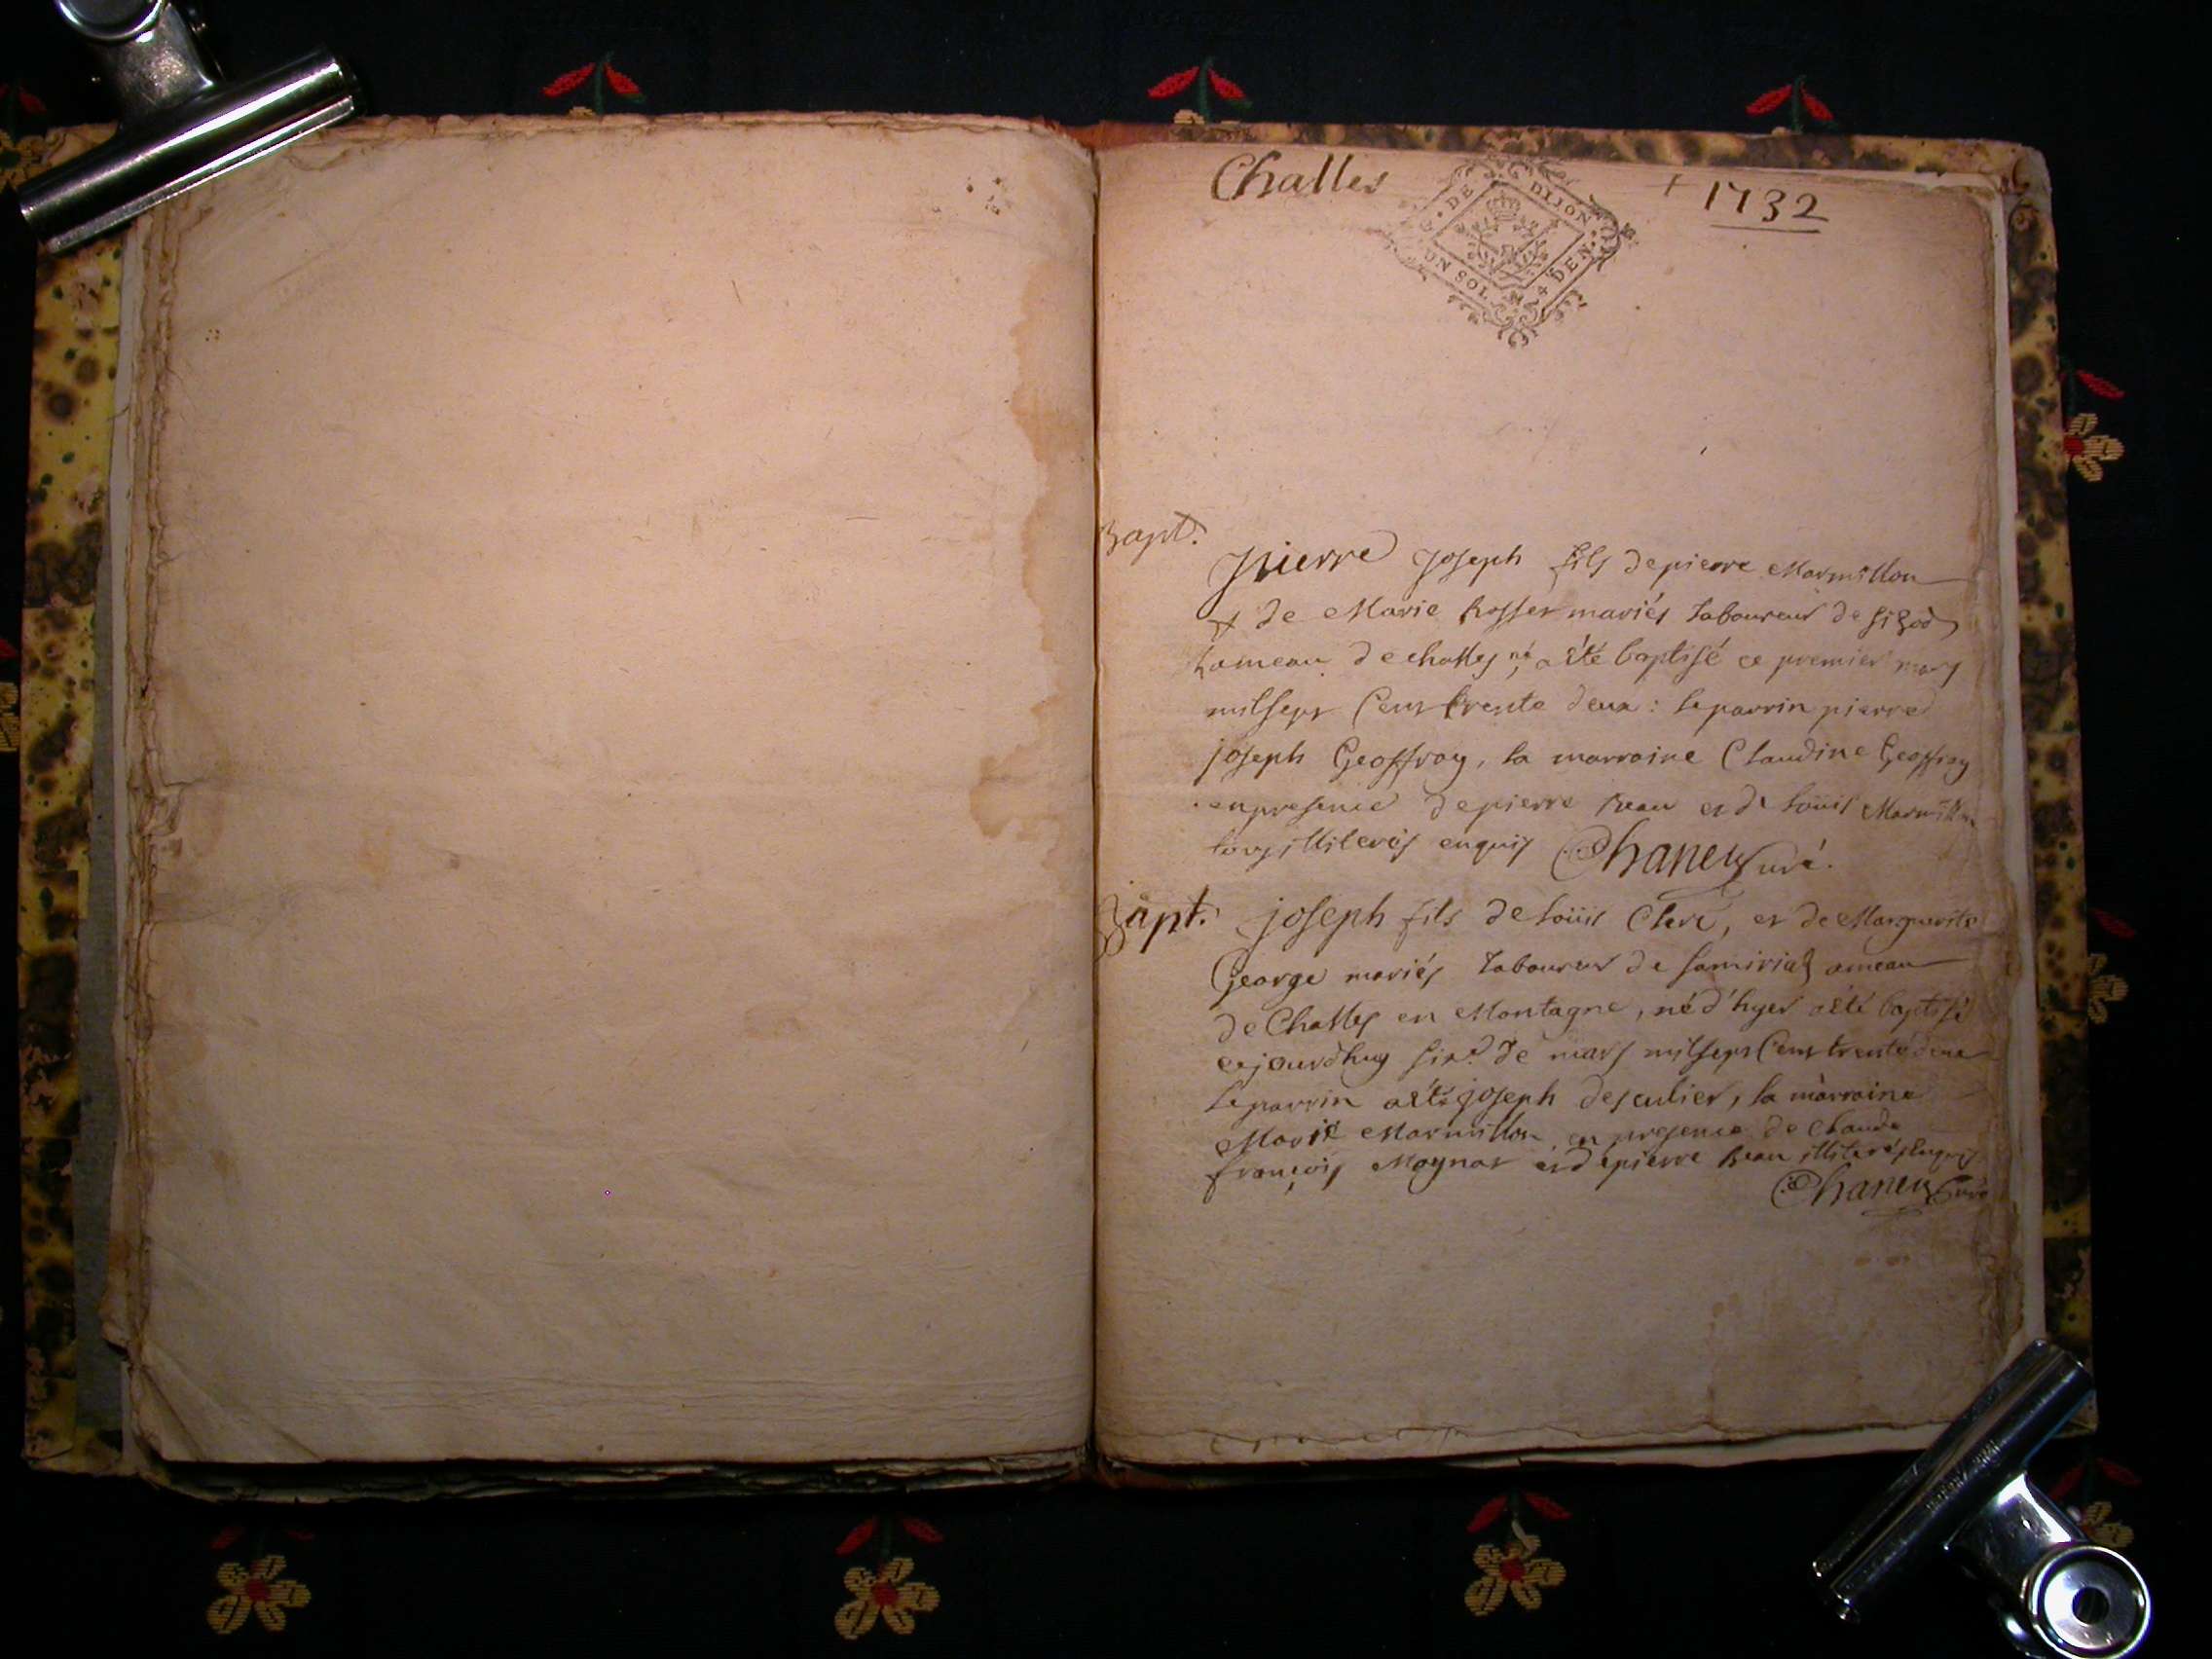 Challes
1732
G. DE DIJON
UN SOL 4 DEN.
Bapt.
Pierre Joseph fils de pierre Marmillon
& de Marie Rosset mariés Laboureur de
hameau de challes né, a été baptisé ce premier mars
mil sept Cent trente deux : le parrin pierre
joseph Geoffray, la marraine Claudine Geoffray
en presence de pierre et de Loüis Marmillon
tous illiterés enquis Chaney Curé.
Bapt. joseph fils de Loüis Clerc, et de Marguerite
George mariés Laboureur de Samiriat ameau
de Challes en Montagne, né d'hyer a été baptisé
cejourdhuy de mars mil sept Cent trente deux
le parrin a été joseph desculier, la marraine
Marie Marmillon en presence de Claude
françois Moynat et de pierre illiterés Enquis
Chaney Curé